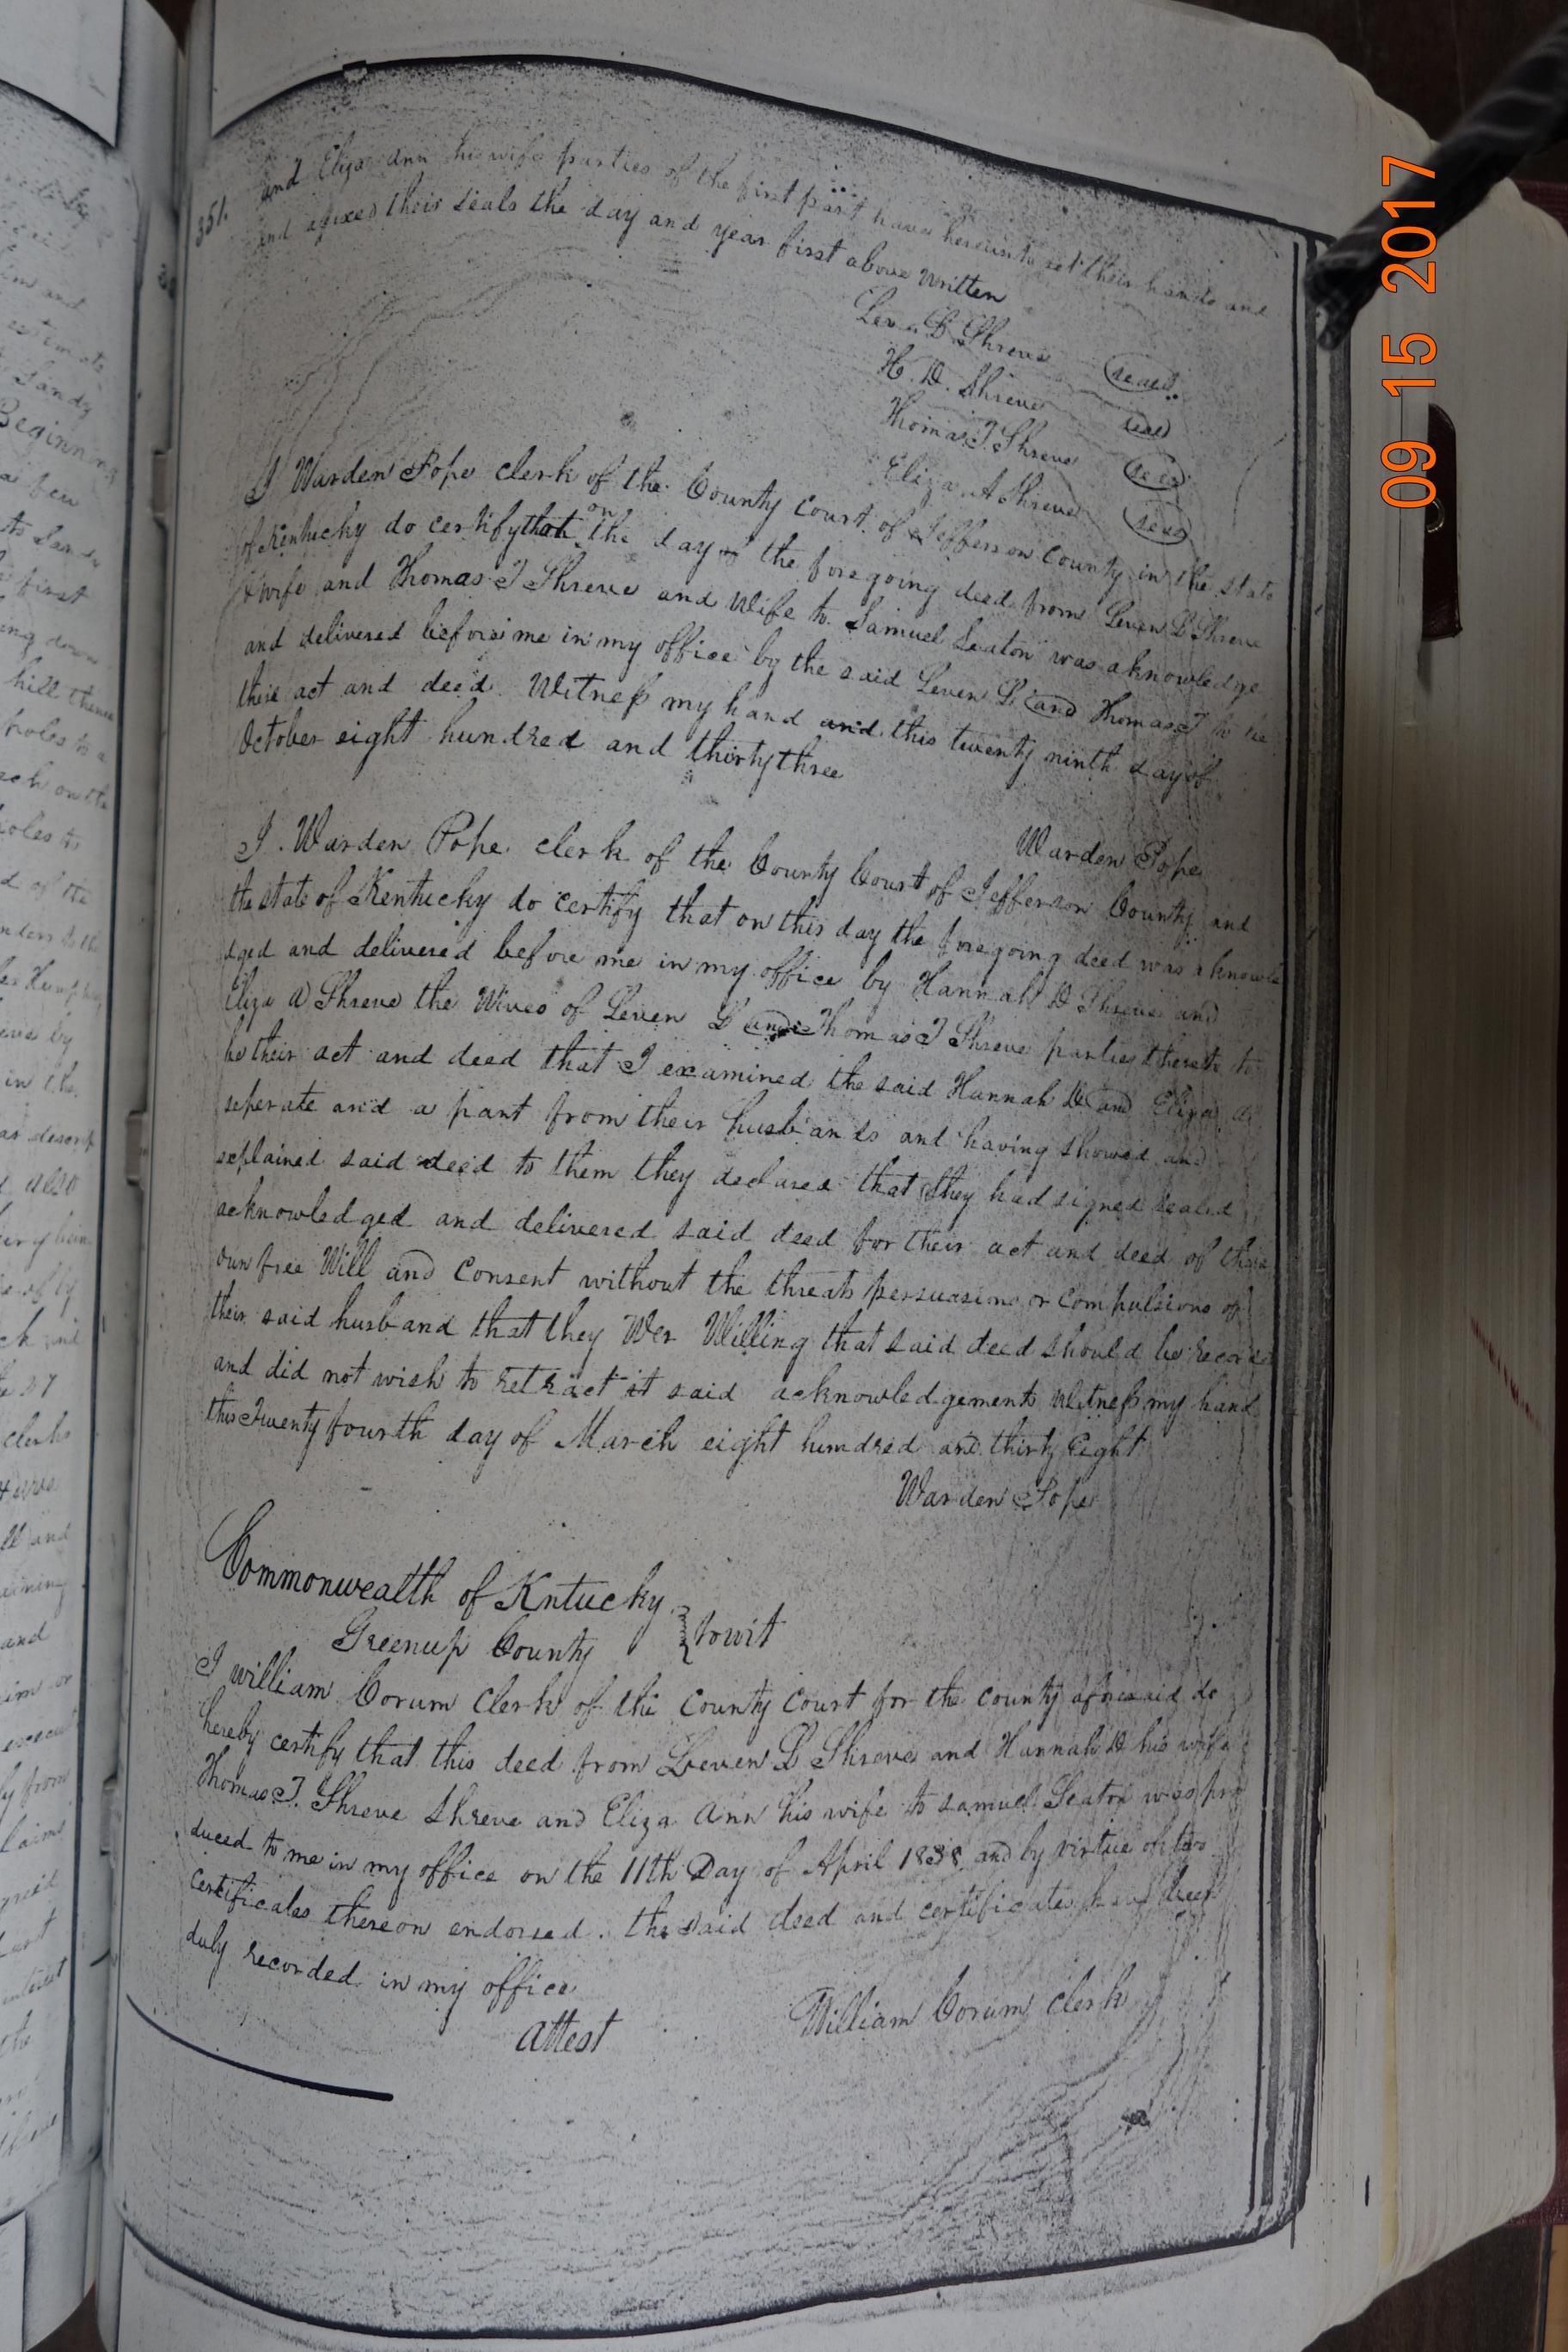 351.
and Eliza Ann his wife parties of the first part have hereunto set their hands and
and afixed their seals the day and year first above written
Leven L Shreve seal
H. D. Shreve seal
Thomas T Shreve seal
Eliza A Shreve seal
I Warden Pope clerk of the County Court of Jefferson County in the state
of Kentucky do certify that on the day the foregoing deed from Leven L Shreve
& wife and Thomas T Shreve and Wife to Samuel Seaton was aknowledge
and delivered before me in my office by the said Leven L and Thomas T to be
their act and deed. Witness my hand and this twenty ninth day of
October eight hundred and thirty three
Warden Pope
I. Warden Pope clerk of the County Court of Jefferson County and
the state of Kentucky do certify that on this day the foregoing deed was aknowle
dged and delivered before me in my office by Hannah D Shreve and
Eliza A Shreve the Wives of Leven L and Thomas T Shreve parties thereto to
be their act and deed that I examined the said Hannah D and Eliza A
seperate and a part from their husbands and having showed and
explained said deed to them they declared that they had signed sealed
acknowledged and delivered said deed for their act and deed of their
own free Will and Consent without the threats persuasions or compulsions of
their said husband that they Wer Willing that said deed should be record
and did not wish to retract it said acknowledgements Witness my hand
this Twenty fourth day of March eight hundred and thirty Eight
Warden Pope
Commonwealth of Kntucky
Greenup County } towit
I william Corum Clerk of the County Court for the county aforesaid do
hereby certify that this deed from Leven L Shreve and Hannah D his wife
Thomas T. Shreve Shreve and Eliza Ann his wife to samuel Seaton was pro
duced to me in my office on the 11th Day of April 1838 and by virtue of two
certificates thereon endorsed. the said deed and certificates have been
duly recorded in my office
Attest William Corum Clerk
09 15 2017